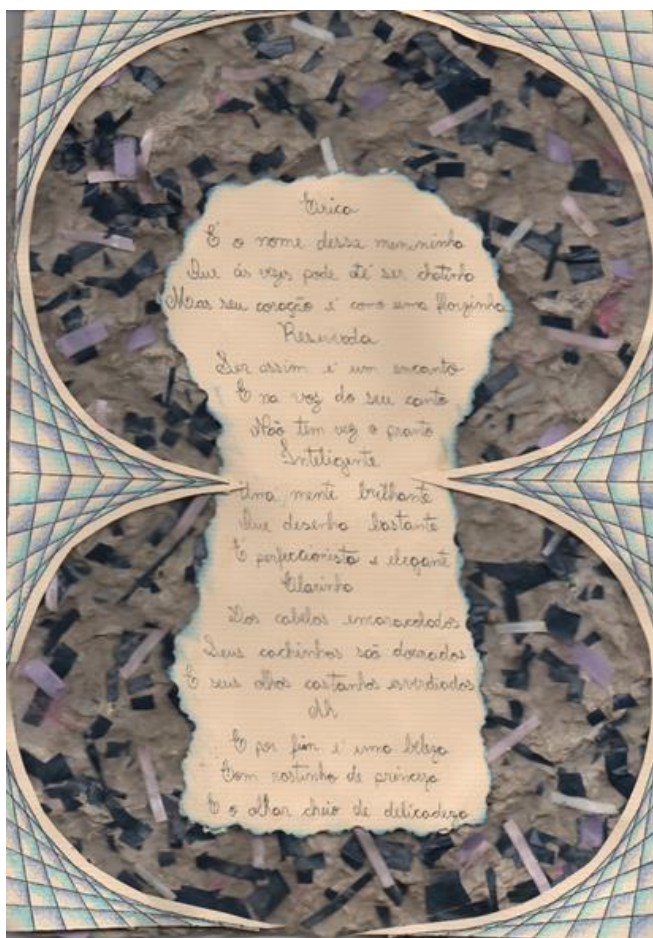 Erica
É o nome dessa menininha
Que ás vezes pode até ser chatinha
Mas seu coração é como uma florzinha
Reservada
Ser assim é um encanto
E na voz do seu canto
Não tem vez o pranto
Inteligente
Uma mente brilhante
Que desenha bastante
É perfeccionista e elegante
Clarinha
Dos cabelos encaracolados
Seus cachinhos são dourados
E seus olhos castanhos esverdiados
Ah
E por fim é uma beleza
Com rostinho de princeza
E o olhar cheio de delicadeza